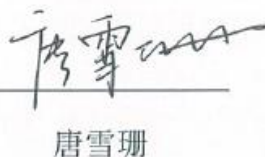 唐雪珊
唐雪珊